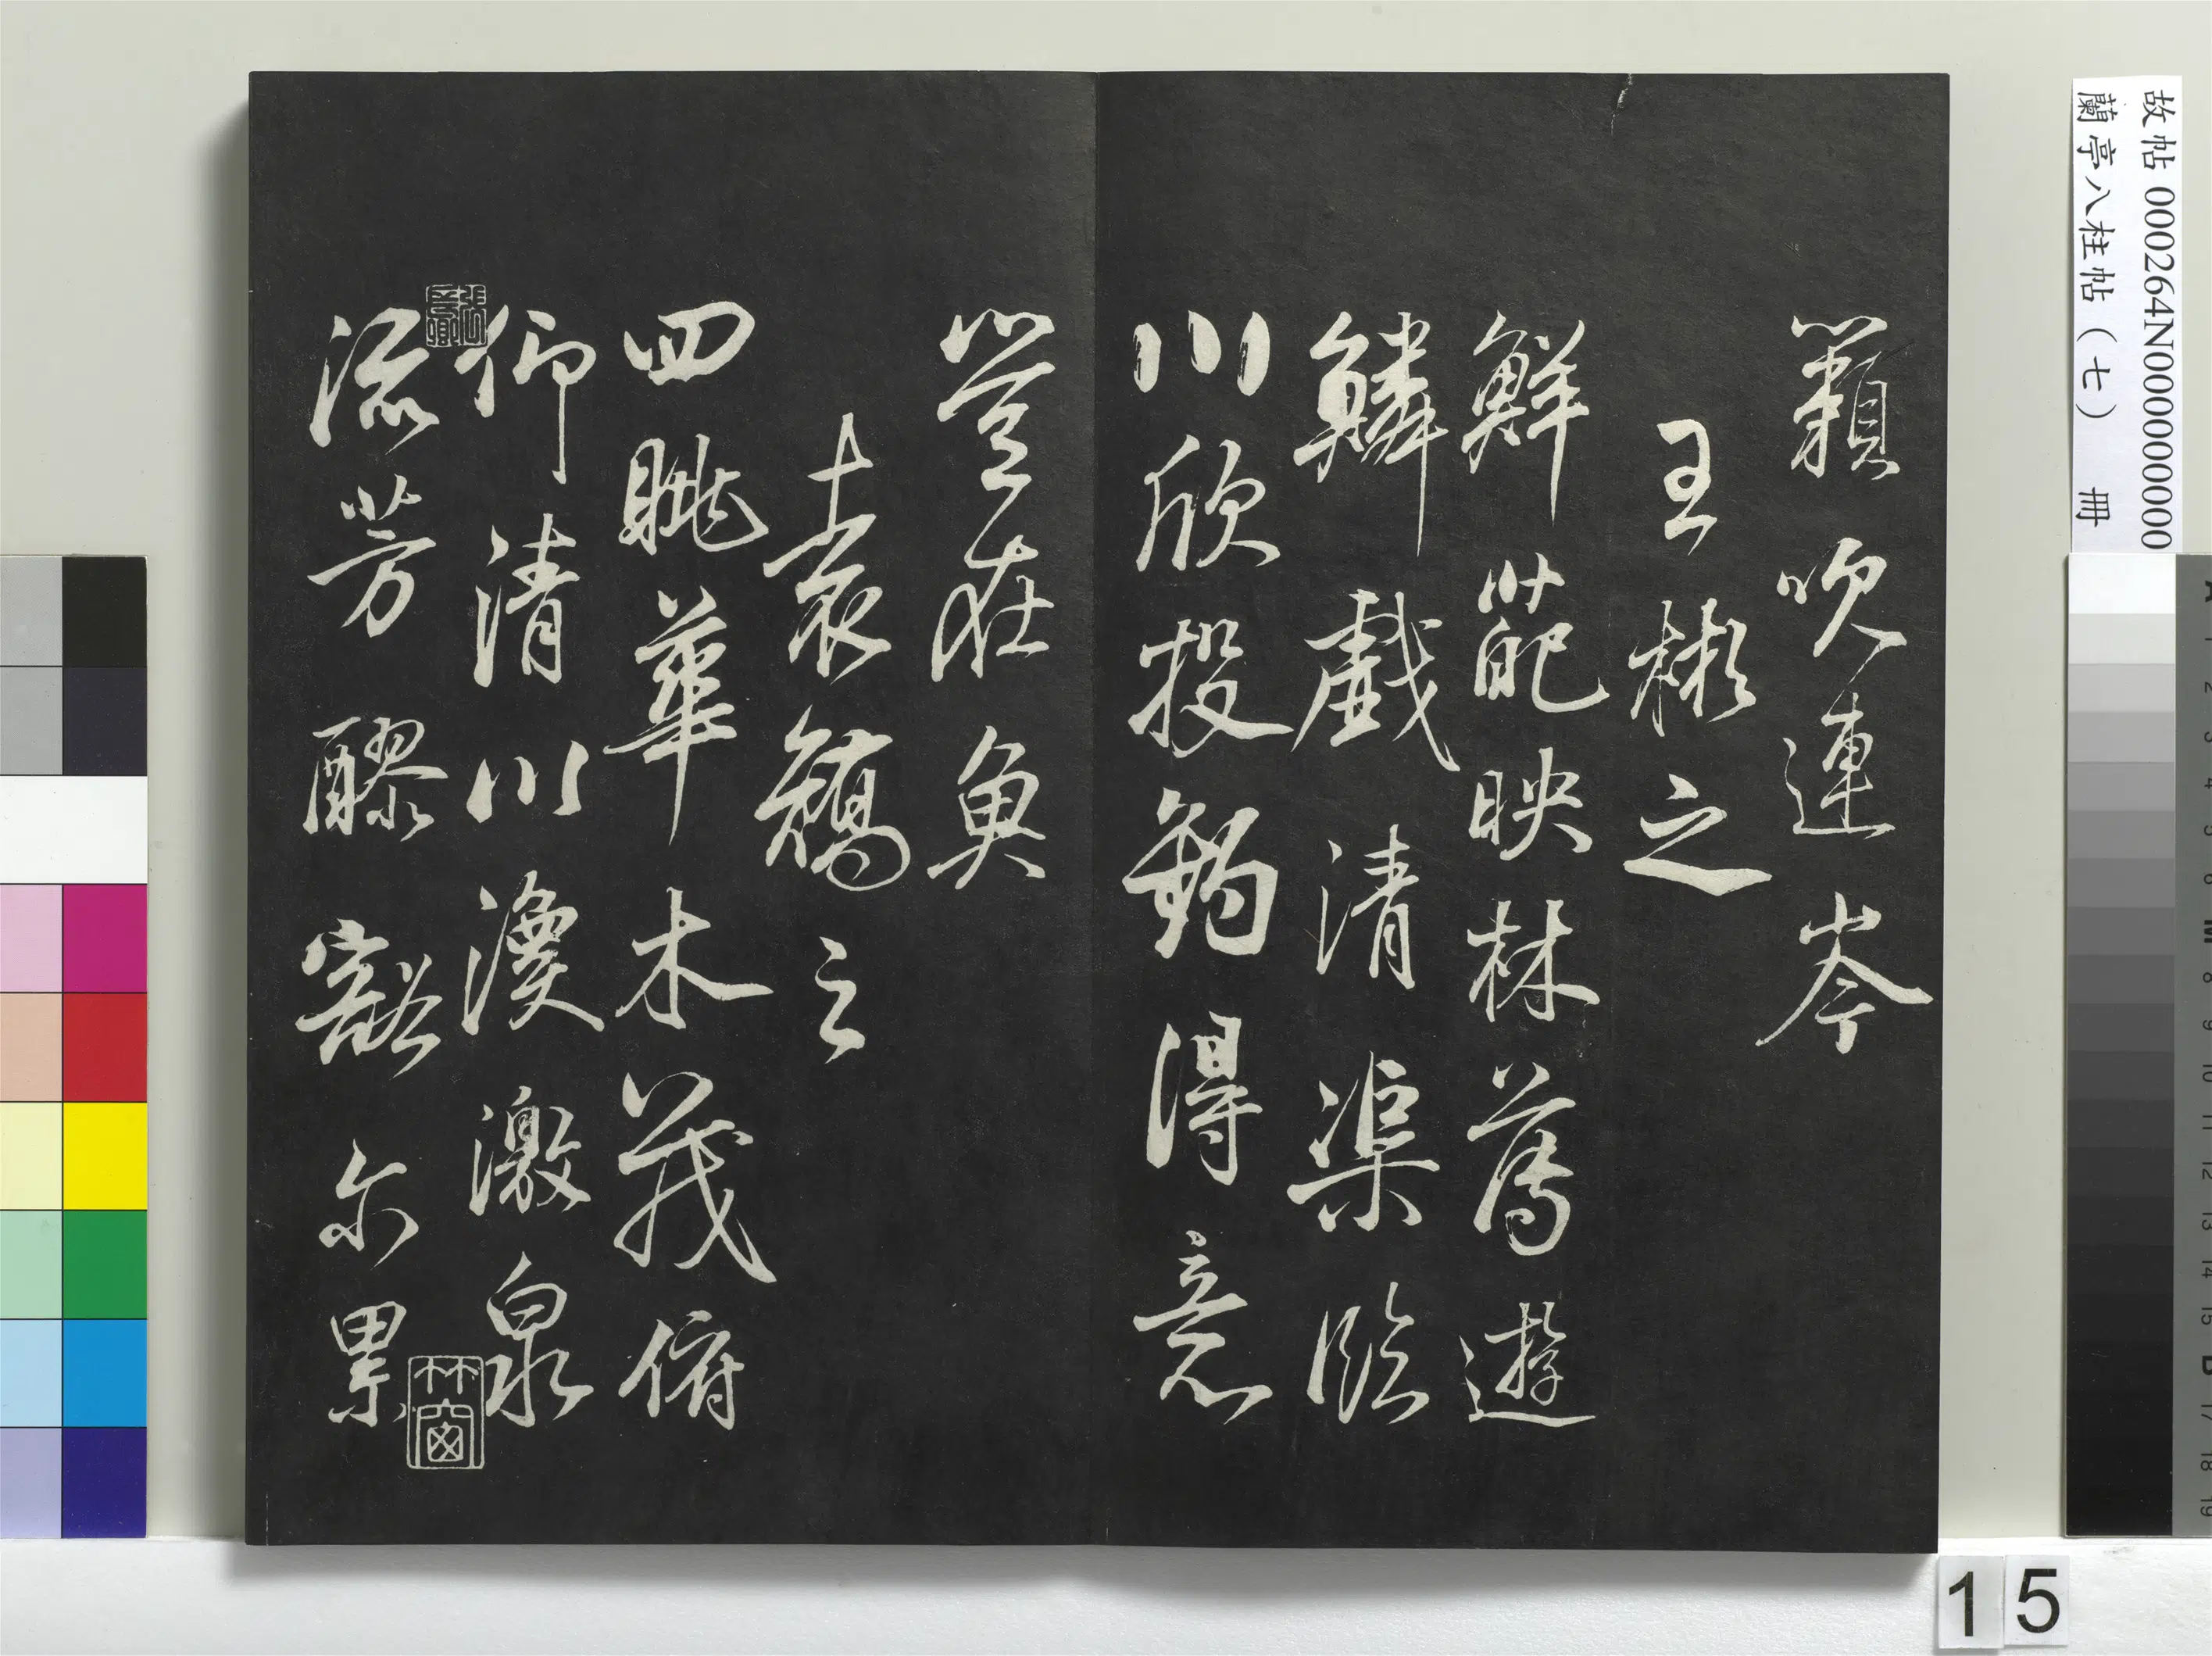 故帖 000264N000000000
蘭亭八柱帖（七） 冊
籟吹連岑
王彬之
鮮葩映林薄遊
鱗戲清渠臨
川欣投釣得意
豈在魚
袁矯之
四眺華木茂俯
仰清川渙激泉
流芳醪豁尓累
林窗
15